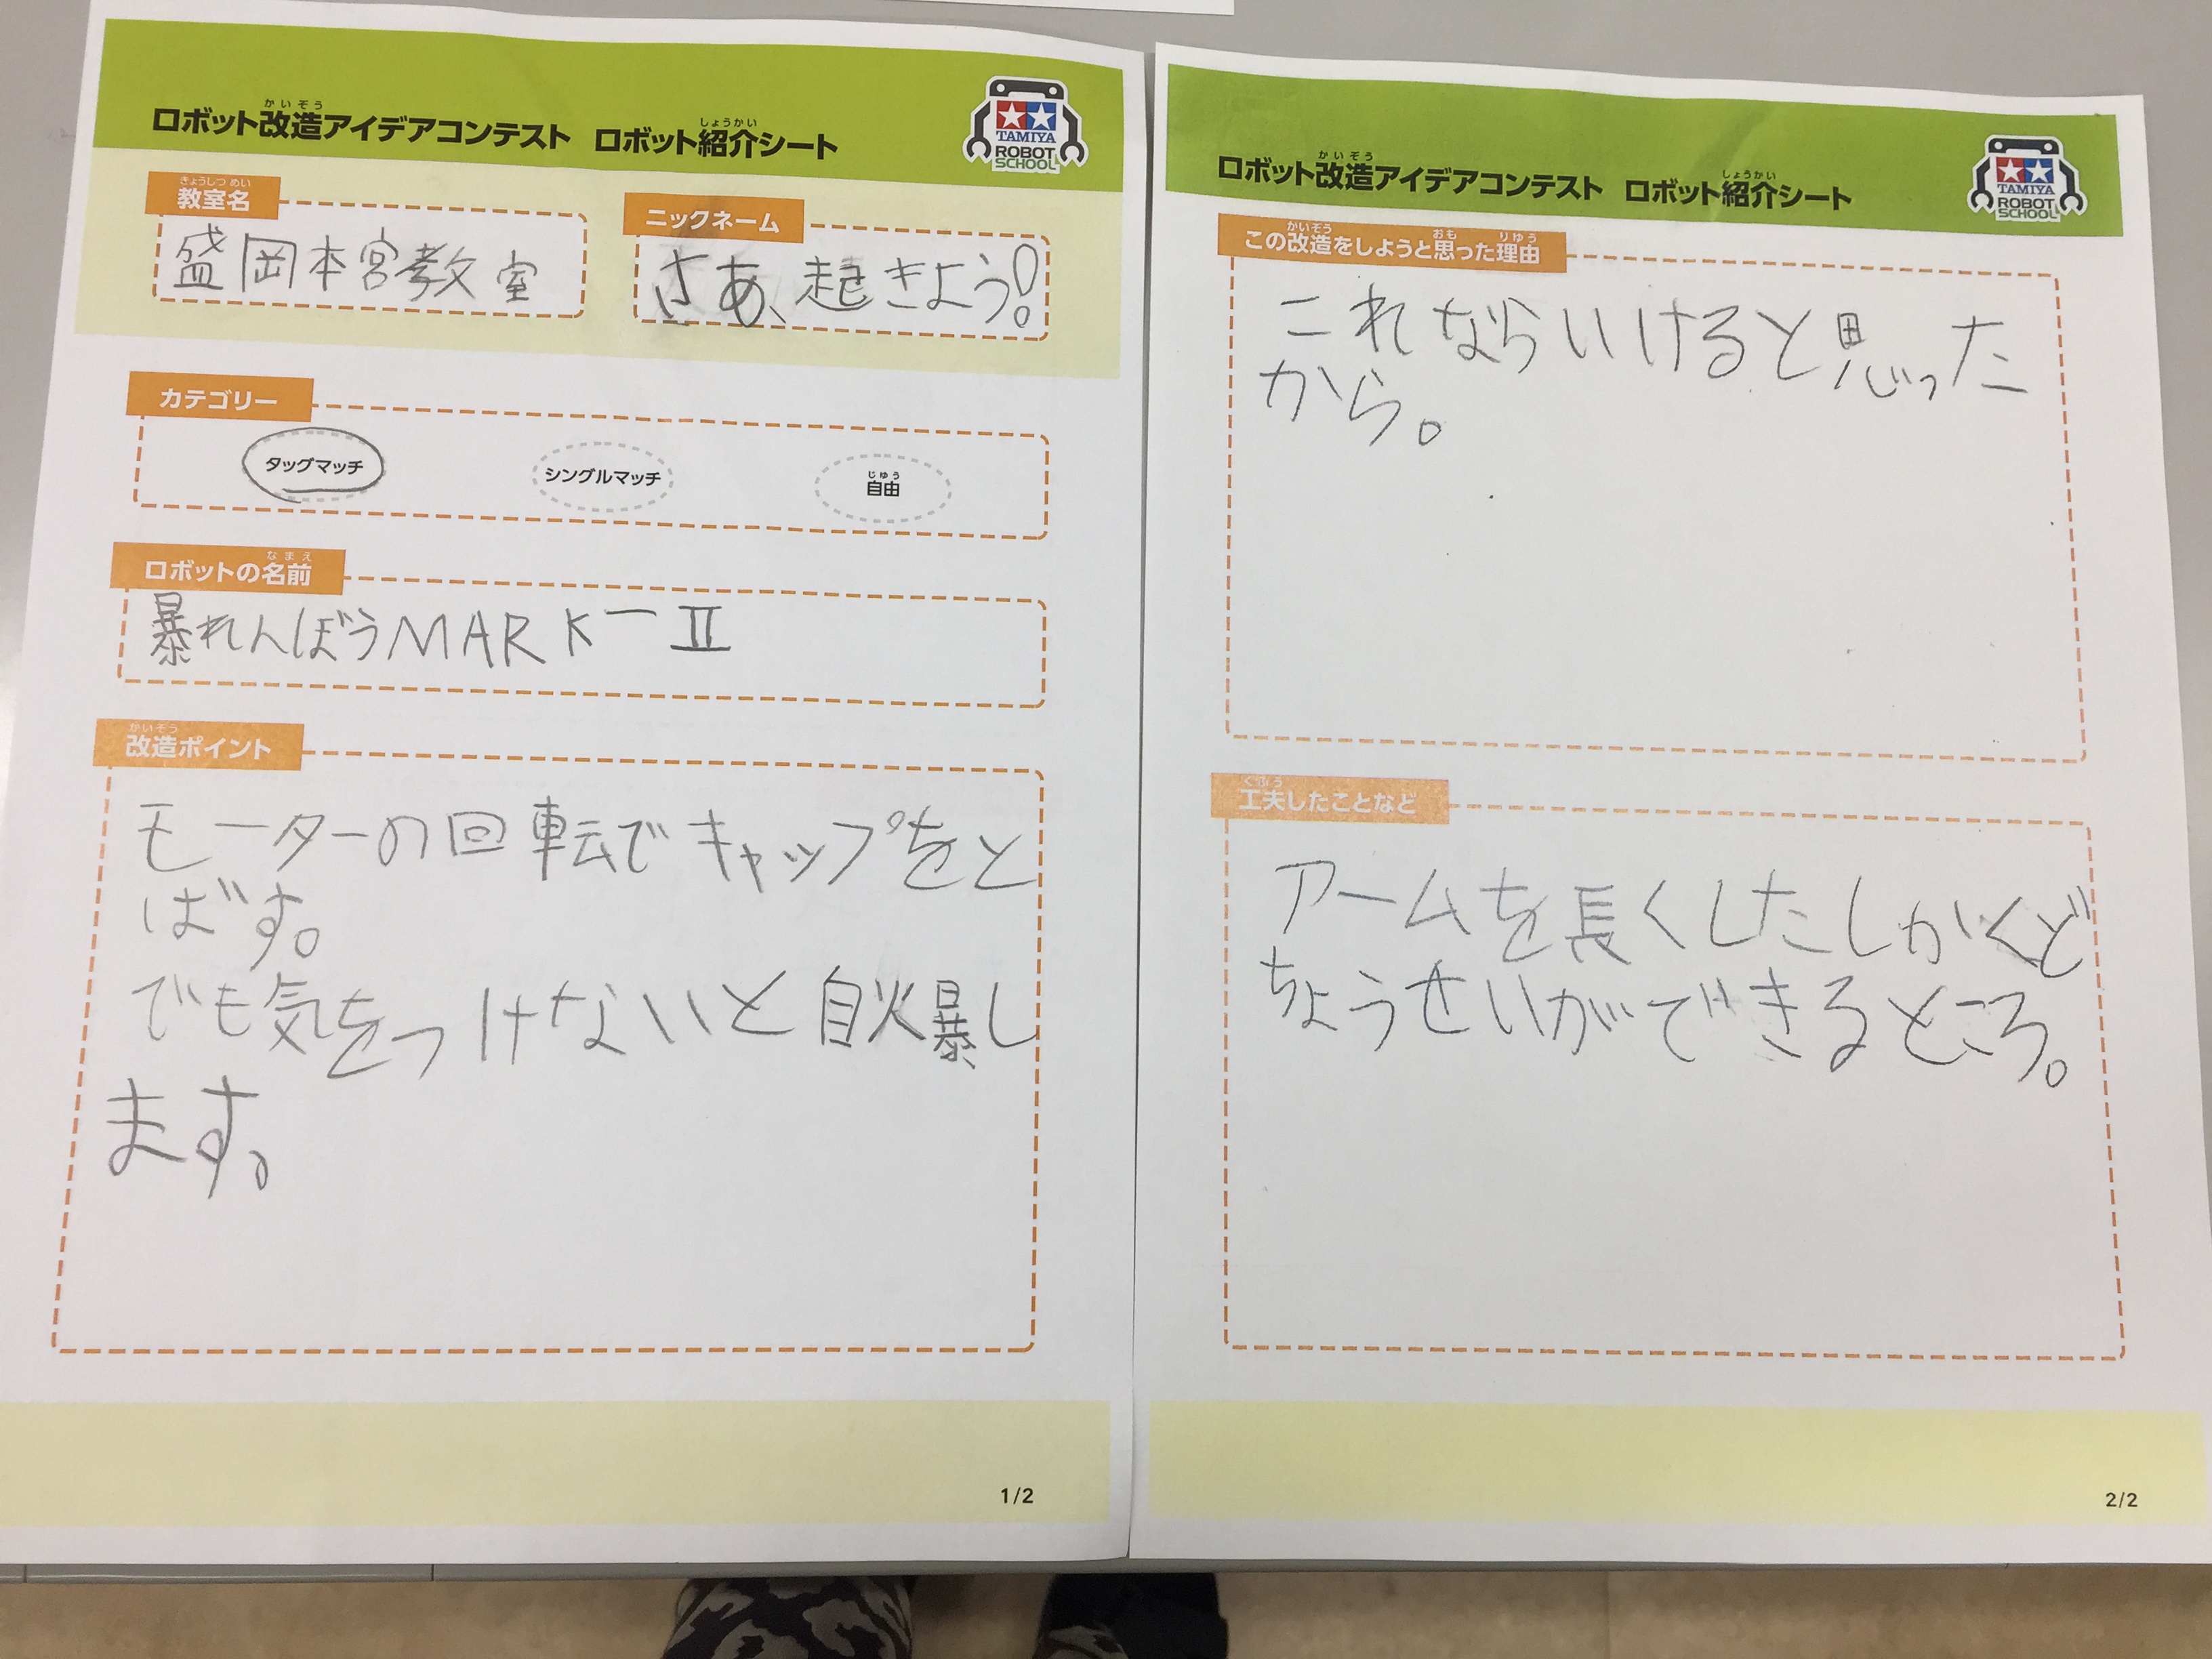 ロボット改造アイデアコンテスト ロボット紹介シート
かいぞう
しょうかい
TAMIYA
ROBOT
SCHOOL
きょうしつ めい
教室名
盛岡本宮教室
ニックネーム
さあ、起きよう!
カテゴリー
タッグマッチ
シングルマッチ
じゆう
自由
なまえ
ロボットの名前
暴れんぼうMARK-II
かいぞう
改造ポイント
モーターの回転でキャップをと
ばす。
でも気をつけないと自爆し
ます。
1/2
ロボット改造アイデアコンテスト ロボット紹介シート
かいぞう
しょうかい
TAMIYA
ROBOT
SCHOOL
かいぞう おも りゆう
この改造をしようと思った理由
これならいけると思った
から。
くふう
工夫したことなど
アームを長くしたしかくど
ちょうせいができるところ。
2/2